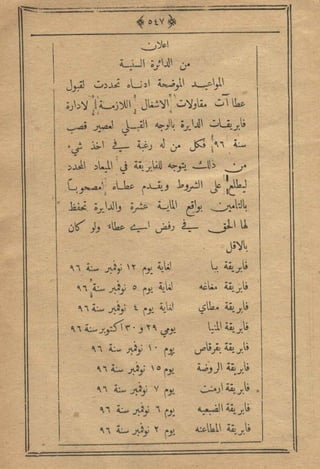 ﴿ ٥٤٧ ﴾
اعلان
من الدائرة السنية
المواعيد الموضحة ادناه تحددت لقبول
عطاآت مقاولات الاشغال اللازمة لادارة
فابريقات الدايرة بالوجه القبلي لعصير قصب
سنة ٩٦ فكل من له رغبة في اخذ شيء
من ذلك يتوجه للفابريقة في الميعاد المحدد
ليطلع على الشروط ويقدم عطاءه مصحوبا
بالتأمين بواقع الماية عشرة والدايرة تحفظ
لها الحق في رفض اي عطاء ولو كان
بالاقل
فابريقة ببا لغاية يوم ١٢ نوفمبر سنة ٩٦
فابريقة مغاغه لغاية يوم ٥ نوفمبر سنة ٩٦
فابريقة مطاي لغاية يوم ٤ نوفمبر سنة ٩٦
فابريقة المنيا يومي ٢٩ و ٣٠ اكتوبر سنة ٩٦
فابريقة بقرقاص يوم ١٠ نوفمبر سنة ٩٦
فابريكة الروضة يوم ١٥ نوفمبر سنة ٩٦
فابريقة ارمنت يوم ٧ نوفمبر سنة ٩٦
فابريقة الضبعيه يوم ٦ نوفمبر سنة ٩٦
فابريقة المطاعنه يوم ٢ نوفمبر سنة ٩٦